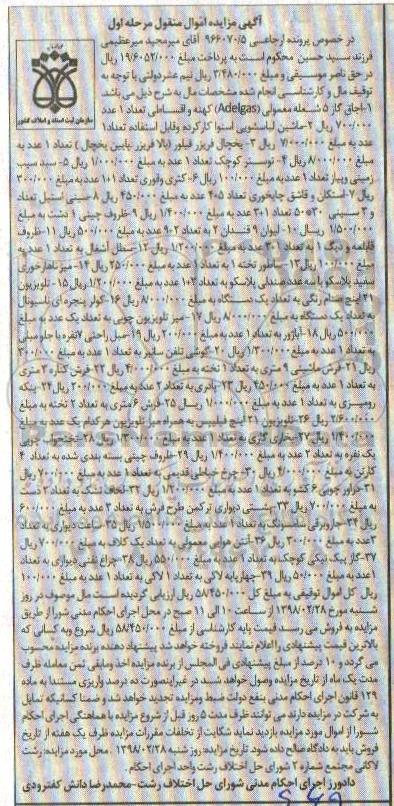 آگهی مزایده اموال منقول مرحله اول
در خصوص پرونده ارجاعی ۹۶۶۰۷۰/۵ آقای میرمجید میرعظیمی
فرزند سید حسین محکوم است به پرداخت مبلغ ۱۹/۶۰۵۲/۰۰۰ ریال
در حق ناصر موسیقی و مبلغ ۳/۴۸۰/۰۰۰ ریال نیم عشر دولتی با توجه به
توقیف مال و کارشناسی انجام شده مشخصات مال به شرح ذیل می باشد.
۱-اجاق گاز ۵ شعله معمولی (Adelgas) کهنه و اقساطی تعداد ۱ عدد
۷۰۰/۰۰۰ ریال ۲-ماشین لباسشویی اسنوا کارکرده وقابل استفاده تعداد۱
عدد به مبلغ ۷/۰۰۰/۰۰۰ ریال ۳- یخچال فریزر فیلور (بالا فریزر پایین یخچال) تعداد ۱ عدد به
مبلغ ۸/۰۰۰/۰۰۰ ریال ۴- توستر کوچک تعداد ۱ عدد به مبلغ ۱/۰۰۰/۰۰۰ ریال ۵- سبد سیب
زمینی وپیاز تعداد ۱ عدد به مبلغ ۱۰۰/۰۰۰ ریال ۶-کتری وقوری تعداد ۱و۱ عدد به مبلغ ۳۰۰/۰۰۰
ریال ۷-استکان و قاشق چایخوری تعداد ۵و۴ عدد به مبلغ ۴۵۰/۰۰۰ ریال ۸-سینی استیل تعداد
۲ و سینی ۳۰*۵۰ تعداد ۱و۳ عدد به مبلغ ۱/۴۰۰/۰۰۰ ریال ۹-ظروف چینی ۱ دشت به مبلغ
۱/۵۰۰/۰۰۰ ریال ۱۰- لیوان ۹ قندان ۲ به تعداد ۲و۹ عدد به مبلغ ۵۰۰/۰۰۰ ریال ۱۱-ظروف
قابلمه و دیگ ۱ به تعداد ۱و۳ عدد به مبلغ ۱/۲۰۰/۰۰۰ ریال ۱۲-سطل آشغال به تعداد ۱ عدد به
مبلغ ۱۰۰/۰۰۰ ریال ۱۳-ساطور تخته ۱ به تعداد ۱ عدد به مبلغ ۲۵۰/۰۰۰ ریال ۱۴-میز ناهارخوری
سفید پلاسکو با سه عدد صندلی پلاسکو به تعداد ۳و۱ عدد به مبلغ ۱/۲۰۰/۰۰۰ ریال ۱۵- تلویزیون
۲۱ اینچ صنام رنگی به تعداد یک دستگاه به مبلغ ۸/۰۰۰/۰۰۰ ریال ۱۶-کولر پنجره ای ناسیونال
به تعداد یک دستگاه به مبلغ ۸/۰۰۰/۰۰۰ ریال ۱۷-میز تلویزیون چوبی به تعداد یک عدد به مبلغ
۵۰۰/۰۰۰ ریال ۱۸-آباژور به تعداد ۱ عدد به مبلغ ۲۰۰/۰۰۰ ریال ۱۹-مبل راحتی ۷نفره با جلو مبلی
به تعداد ۱ عدد به مبلغ ۱/۲۰۰/۰۰۰ ریال ۲۰-گوشی تلفن سانیر به تعداد ۱ عدد به مبلغ ۳۰۰/۰۰۰
ریال ۲۱-فرش ماشینی ۹ متری به تعداد ۱ تخته به مبلغ ۴/۰۰۰/۰۰۰ ریال ۲۲-فرش کناره ۳ متری
به تعداد ۱ عدد به مبلغ ۴۵۰/۰۰۰ ریال ۲۳- پادری به تعداد ۲ عدد به مبلغ ۲۰۰/۰۰۰ ریال ۲۴-پنکه
رومیزی به تعداد ۱ عدد به مبلغ ۱/۰۰۰/۰۰۰ ریال ۲۵-فرش ۶ متری به تعداد ۲ تخته به مبلغ
۲/۶۰۰/۰۰۰ ریال ۲۶-تلویزیون ۲۱ اینچ فیلیپس به همراه میز تلویزیون هرکدام یک عدد به مبلغ
۱/۴۰۰/۰۰۰ ریال ۲۷-بخاری گازی به تعداد ۱ عدد به مبلغ ۱/۳۰۰/۰۰۰ ریال ۲۸-تختخواب چوبی
یک نفره به تعداد ۲ عدد به مبلغ ۱/۴۰۰/۰۰۰ ریال ۲۹-ظروف چینی بسته بندی شده به تعداد ۴
کارتن به مبلغ ۴/۰۰۰/۰۰۰ ریال ۳۰- چرخ خیاطی قدیمی به تعداد ۱ عدد به مبلغ ۷۰۰/۰۰۰ ریال
۳۱-دراور چوبی ۶ کشو به تعداد ۱ عدد به مبلغ ۱/۲۰۰/۰۰۰ ریال ۳۲-لحاف تشک به تعداد ۲ دست
به مبلغ ۷۰۰/۰۰۰ ریال ۳۳-پشتی دیواری ترکمن طرح فرش به تعداد ۳ عدد به مبلغ ۶۰۰/۰۰۰
ریال ۳۴-جاروبرقی سامسونگ به تعداد ۱ عدد به مبلغ ۱/۵۰۰/۰۰۰ ریال ۳۵-ساعت دیواری به تعداد
۳عدد به مبلغ ۳۰۰/۰۰۰ ریال ۳۶-آنتن هوایی معمولی به تعداد یک کلاف به مبلغ ۷۰۰/۰۰۰ ریال
۳۷-گاز پیک نیکی کوچک به تعداد ۱ عدد به مبلغ ۵۵۰/۰۰۰ ریال ۳۸-چراغ نفتی دیواری به تعداد
۱عدد به مبلغ ۵۰/۰۰۰ ریال ۳۹-چهارپایه لاکی به تعداد ۱ لاکی به تعداد ۱ عدد به مبلغ ۱۰۰/۰۰۰
ریال کل اموال توقیفی به مبلغ کل ۵۸/۴۵۰/۰۰۰ ریال ارزیابی گردیده است مال موصوف در روز
شنبه مورخ ۱۳۹۸/۰۲/۲۸ از ساعت ۱۰ الی ۱۱ صبح در محل اجرای احکام مدنی شورا از طریق
مزایده به فروش می رسد قیمت پایه کارشناسی از مبلغ ۵۸/۴۵۰/۰۰۰ ریال شروع وبه کسانی که
بالاترین قیمت پیشنهادی را اعلام نمایند فروخته خواهد شد پیشنهاد دهنده برنده مزایده محسوب
می گردد و ۱۰ درصد از مبلغ پیشنهادی فی المجلس از برنده مزایده اخذ ومابقی ثمن معامله ظرف
مدت یک ماه از تاریخ مزایده وصول خواهد شد در غیراینصورت ده درصد واریزی مستندا به ماده
۱۲۹ قانون اجرای احکام مدنی بنفع دولت ضبط ومزایده تجدید خواهد شد و ضمنا کسانیکه تمایل
به شرکت در مزایده دارند می توانند ظرف مدت ۵ روز قبل از شروع مزایده با هماهنگی اجرای احکام
شورا از اموال مورد مزایده بازدید نماید شکایت از تخلفات مقررات مزایده ظرف یک هفته از تاریخ
فروش باید به دادگاه صالح داده شود. تاریخ مزایده: روز شنبه ۱۳۹۸/۰۲/۲۸ . محل مورد مزایده: رشت
لاکانی مجتمع شماره ۲ شورای حل اختلاف رشت واحد اجرای احکام.
دادورز اجرای احکام مدنی شورای حل اختلاف رشت-محمدرضا دانش کفترودی
سازمان ثبت اسناد و املاک کشور